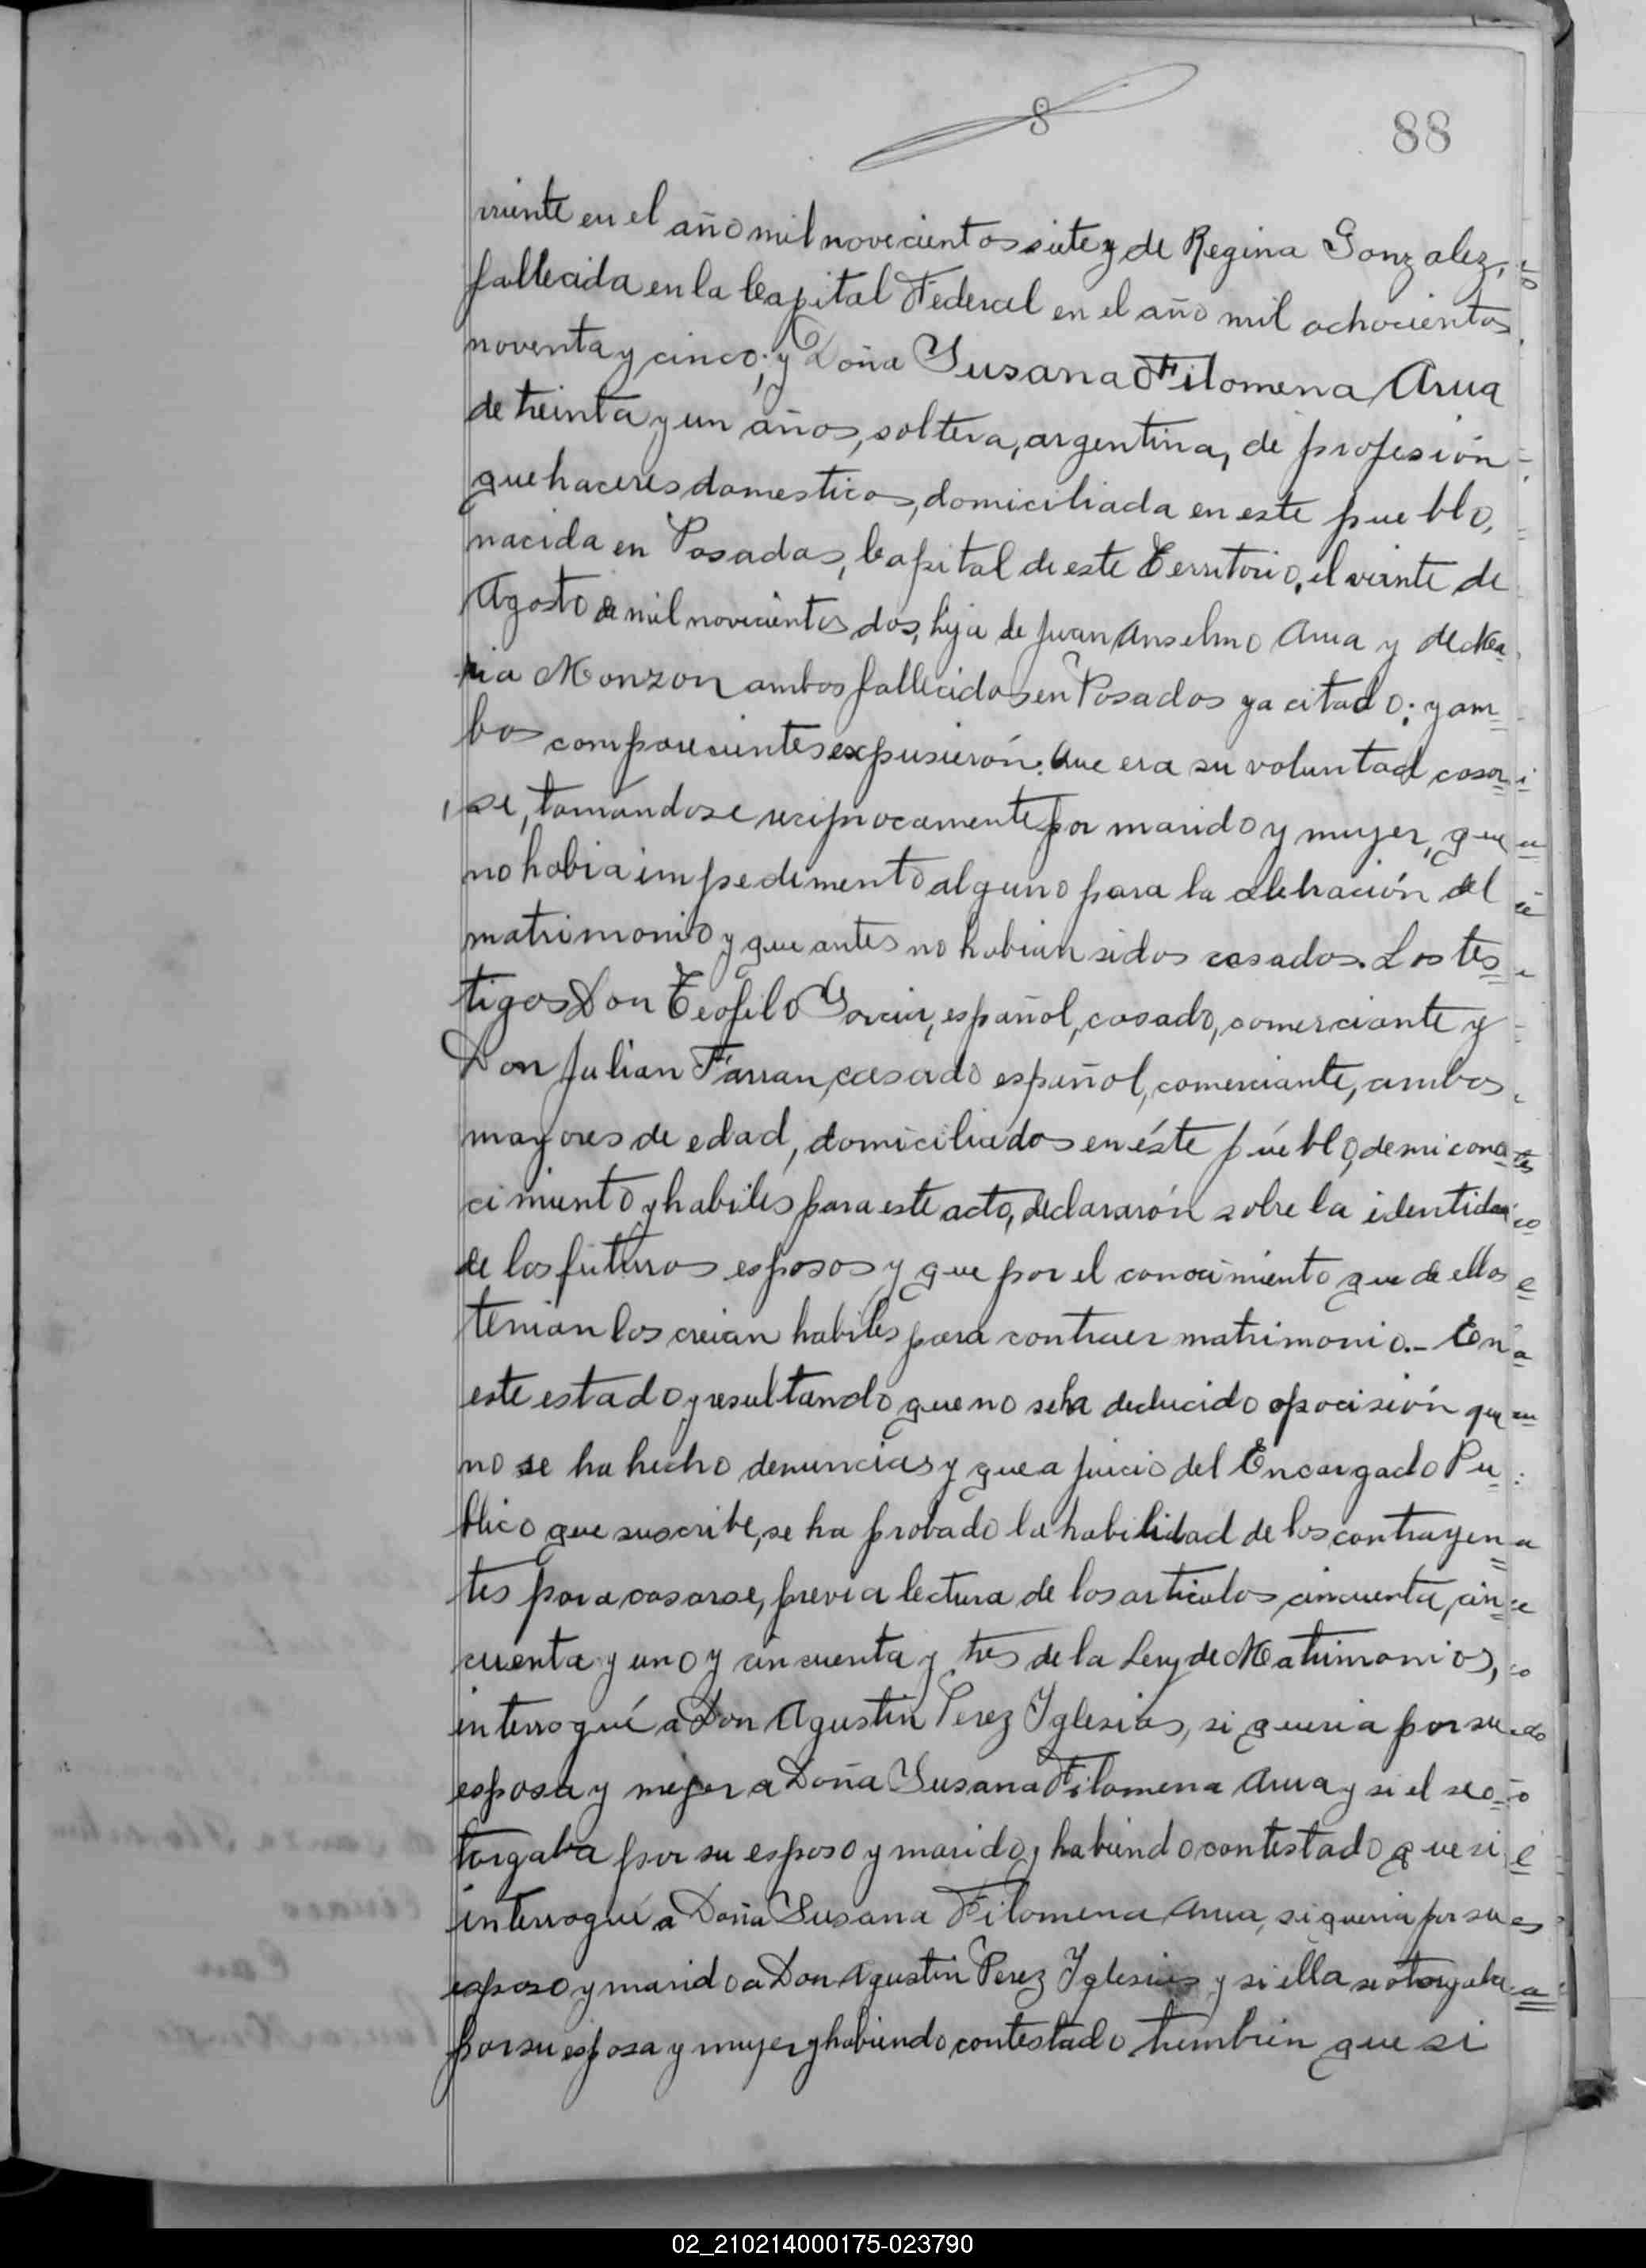 8
88
rriente en el año mil novecientos siete y de Regina Gonzalez,
fallecida en la Capital Federal en el año mil ochocientos
noventa y cinco; y Doña Susana Filomena Arua
de treinta y un años, soltera, argentina, de profesión
quehaceres domesticos, domiciliada en este pueblo,
nacida en Posadas, Capital de este Territorio, el veinte de
Agosto de mil novecientos dos, hija de Juan Anselmo Arua y de Ma
ria Monzon ambos fallecidos en Posadas ya citado; y am=
bos comparecientes expusierón: Que era su voluntad casar=
se, tomandose reciprocamente por marido y mujer, que
no habia impedimento alguno para la celebración del
matrimonio y que antes no habian sidos casados. Los tes=
tigos Don Teofilo Garcia, español, casado, comerciante y
Don Julian Farran, casado español, comerciante, ambos
mayores de edad, domiciliados en éste puéblo, de mi cono=
cimiento y habiles para este acto, declararón sobre la identidad
de los futuros esposos y que por el conocimiento que de ellos
tenian los creian habiles para contraer matrimonio.- En
este estado y resultando que no se ha deducido opocisión que
no se ha hecho denuncias y que a juicio del Encargado Pu=
blico que suscribe, se ha probado la habilidad de los contrayen=
tes para casarse, previa lectura de los articulos cincuenta, cin=
cuenta y uno y cincuenta y tres de la Ley de Matrimonios,
interrogué a Don Agustin Perez Iglesias, si queria por su
esposa y mejer a Doña Susana Filomena Arua y si el se o=
torgaba por su esposo y marido, habiendo contestado que si
interrogué a Doña Susana Filomena Arua, si queria por su
esposo y marido a Don Agustin Perez Iglesias y si élla se otorgaba
por su esposa y mujer y habiendo contestado tambien que si
02_210214000175-023790